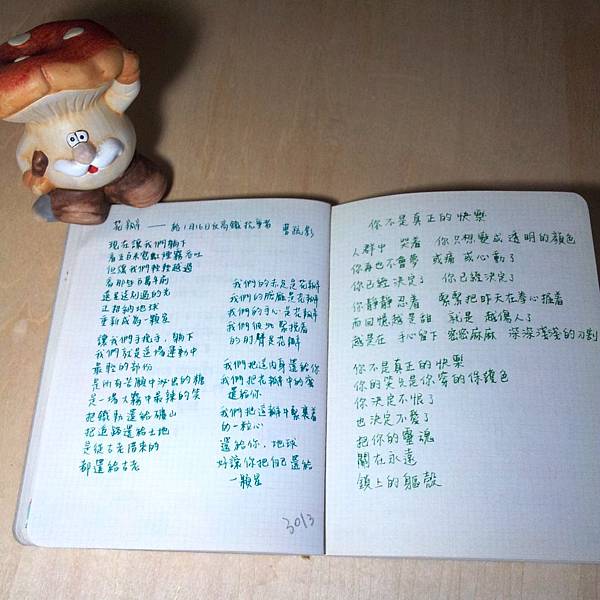 花瓣 —— 給1月16日反高鐵抗爭者 曹疏影
現在讓我們躺下
看五百米霓虹煙霧吞吐
但讓我們輕輕越過
看那些百萬年前
送別過的光
正 納地球
重新成為一顆星
讓我們手挽手,躺下
我們就是這場運動中
最輕的部份
是所有苦難中沁出的糖
是一場大霧中最辣的笑
把鐵軌還給礦山
把道路還給土地
是從古老借來的
都還給古老
我們的赤足是花瓣
我們的臉龐是花瓣
我們的手心是花瓣
我們彼此緊挽着
的肘臂是花瓣
我們把這肉身還給你
我們把花瓣中的蜜
還給你
我們把這瓣中緊裹着
的一粒心
還給你,地球
好讓你把自己還給
一顆星
3013
你不是真正的快樂
人群中 哭着 你只想變成透明的顏色
你再也不會夢 或痛 或心動了
你已經決定了 你已經決定了
你靜靜忍着 緊緊把昨天在拳心握着
而回憶越是甜 就是 越傷人了
越是在 手心留下 密密麻麻 深深淺淺的刀割
你不是真正的快樂
你的笑只是你穿的保護色
你決定不恨了
也決定不愛了
把你的靈魂
關在永遠
鎖上的軀殼